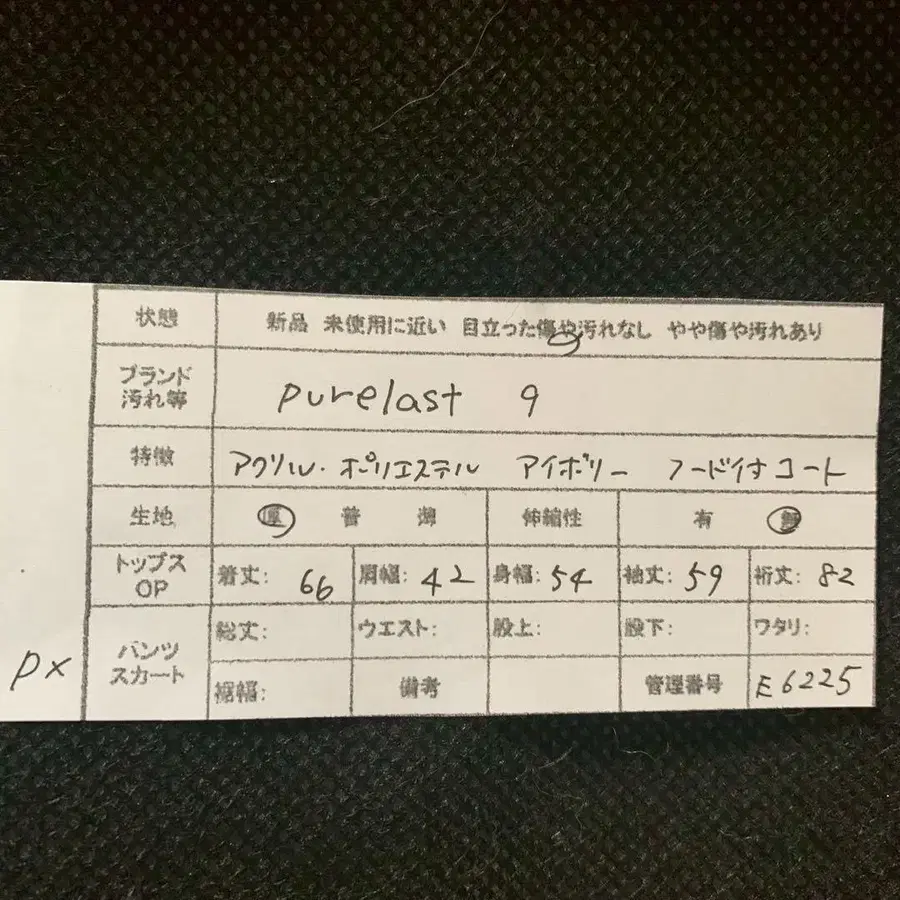 状態 新品 未使用に近い 目立った傷や汚れなし やや傷や汚れあり
ブランド
汚れ等 purelast 9
特徴 アクリル・ポリエステル アイボリー フード付コート
生地 厚 普 薄 伸縮性 有 無
トップス
OP 着丈: 66 肩幅: 42 身幅: 54 袖丈: 59 裄丈: 82
パンツ
スカート 総丈: ウエスト: 股上: 股下: ワタリ:
裾幅: 備考 管理番号 E6225
px